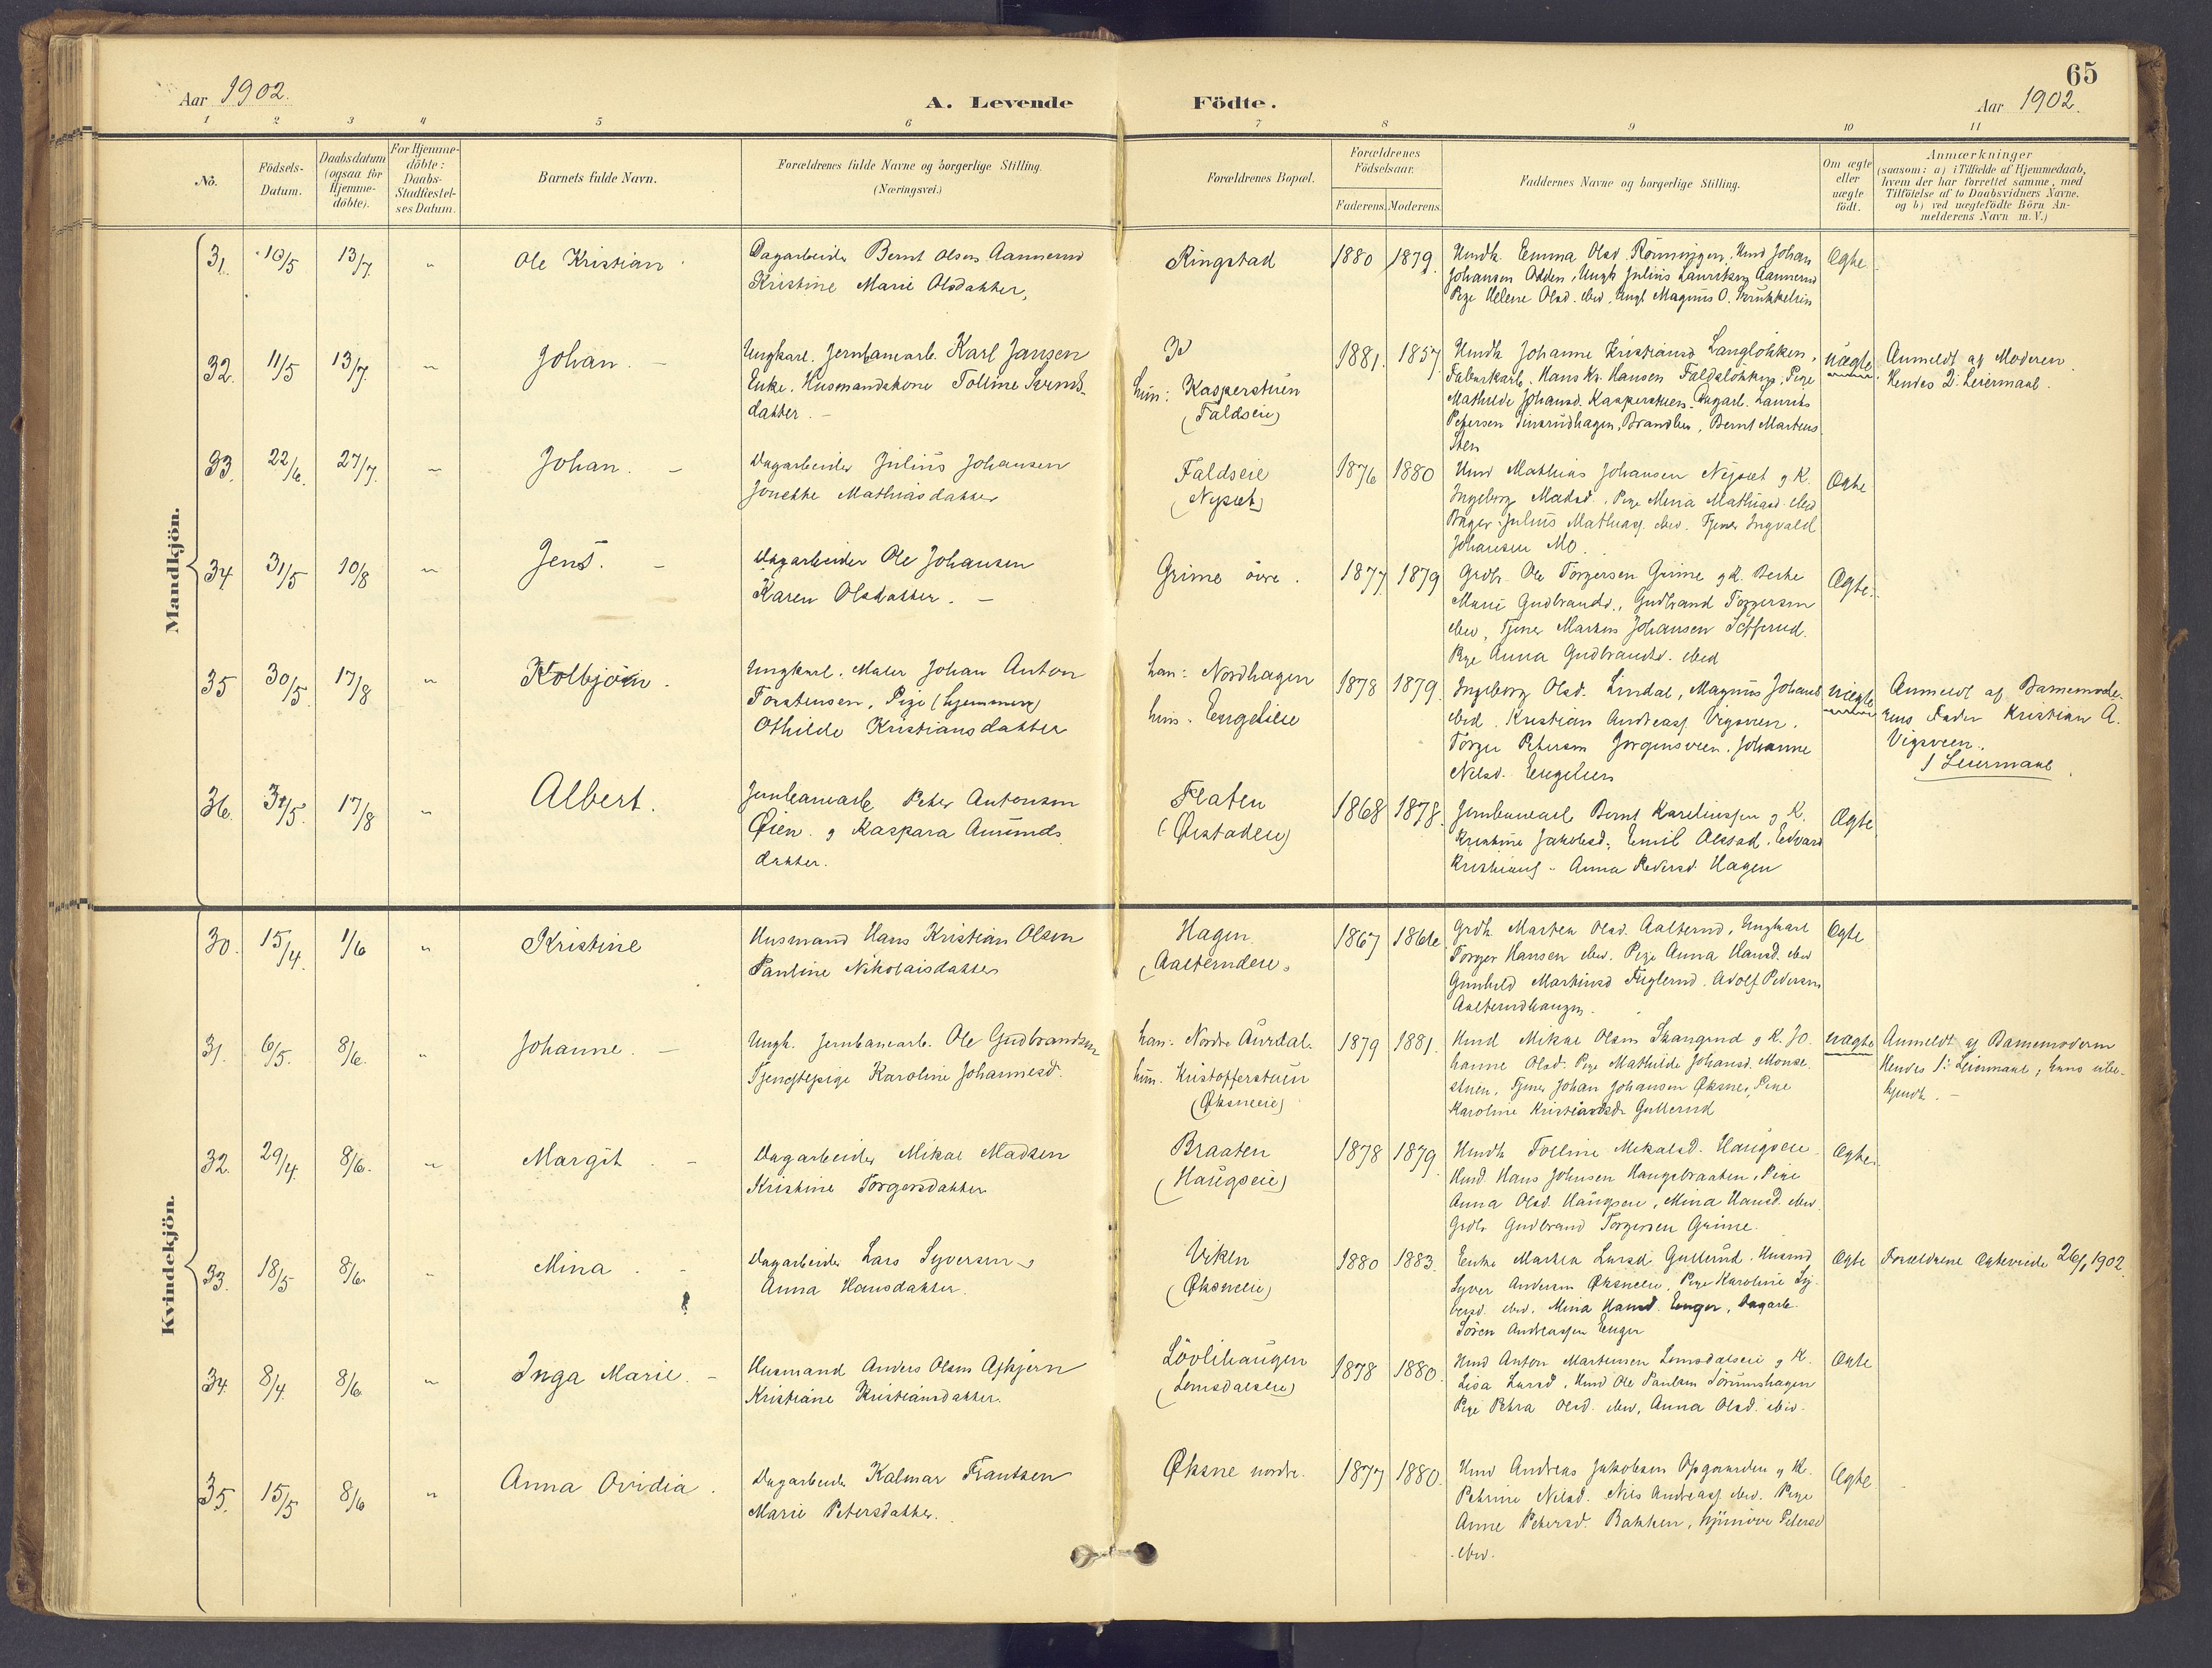 65
Aar 1902.
A. Levende Födte.
Aar 1902.
1 2 3 4 5 6 7 8 9 10 11
No.
Födsels-
Datum.
Daabsdatum
(ogsaa for
Hjemme-
döbte).
For Hjemme-
döbte:
Daabs-
Stadfæstel-
ses Datum.
Barnets fulde Navn.
Forældrenes fulde Navne og borgerlige Stilling.
(Næringsvei.)
Forældrenes Bopæl.
Forældrenes
Födselsaar.
Faderens. Moderens.
Faddernes Navne og borgerlige Stilling.
Om ægte
eller
uægte
födt.
Anmærkninger
(saasom: a) i Tilfælde af Hjemmedaab,
hvem der har forrettet samme, med
Tilföielse af to Daabsvidners Navne.
og b) ved uægtefödte Börn An-
melderens Navn m. V.)
Mandkjön.
31. 10/5 13/7 " Ole Kristian
Dagarbeider Bernt Olsen Aannerud
Kristine Marie Olsdatter,
Ringstad
1880 1879.
Husdh. Emma Olsd. Rönningen. Husd Johan
Johansen Odden, Ungk Julius Lauritsen Aannerud
Pige Helene Olsd. ibid, Ungk Magnus O.
Ægte.
32. 11/5 13/7. " Johan. -
Ungkarl. Jernbanearb. Karl Jansen
Enke. Husmandskone Tolline Svends-
datter. -
hun: Kasperstuen
(Faldseie)
1881. 1857.
Husdh Johanne Kristiansd Langlökken,
Fabrikarb. Hans Kr. Hansen Faldslökken, Pige
Mathilde Johansd. Kasperstuen. Dagarb. Laurits
Petersen Finsrudhagen, Brandbu, Bernt Martins.
Sten
uægte.
Anmeldt af Moderen.
Hendes 2. Leiermaal.
33. 22/6. 27/7. " Johan. -
Dagarbeider Julius Johansen
Jonette Mathiasdatter
Faldseie
(Nyset)
1876 1880
Husd Mathias Johansen Nyset og K.
Ingeborg Madsd., Pige Mina Mathiasd. ibid
Bager Julius Mathias. ibid. Tjener Ingvald
Johansen Mo.
Ægte
34 31/5 10/8 " Jens. -
Dagarbeider Ole Johansen
Karen Olsdatter. -
Grime övre.
1877 1879
Grdb. Ole Torgersen Grime og K. Berthe
Marie Gudbrandsd., Gudbrand Torgersen
ibid, Tjener Martin Johansen Sefferud.
Pige Anna Gudbrandsd. ibid
Ægte.
35 30/5 17/8 " Kolbjörn.
Ungkarl. Maler Johan Anton
Torstensen, Pige (hjemmev)
Othilde Kristiansdatter
han: Nordhagen
hun. Engelien
1878 1879.
Ingeborg Olsd. Lindal, Magnus Johans
ibid. Kristian Andreas. Vigsveen.
Torger Petersen Jorgensveen. Johanne
Nilsd. Engelien
uægte
Anmeldt af Barnemode-
rens Fader Kristian A.
Vigsveen.
1 Leiermaal.
36. 31/5. 17/8 " Albert.
Jernbanearb Peter Antonsen
Øien. og Kaspara Amunds
datter.
Flaten
(Ørstadeie)
1868 1878.
Jernbanearb Bernt Kareliussen og K.
Kristine Jakobsd. Emil Olsstad. Edvard
Kristians - Anna Pedersd. Hagen
Ægte
Kvindekjön.
30. 15/4. 1/6 " Kristine
Husmand Hans Kristian Olsen
Pauline Nikolaisdatter
Hagen.
(Aalterudeie)
1867 1866.
Grdk. Marten Olsd. Aalterud, Ungkarl
Torger Hansen ibid. Pige Anna Hansd. ibid
Gunhild Martinsd Fuglerud. Adolf Pedersen
Aalterudhaugen.
Ægte
31. 6/5. 8/6. " Johanne. -
Ungk. Jernbanearb. Ole Gudbrandsen
Tjenestepige Karoline Johannesd.
han: Nordre Aurdal.
hun. Kristofferstuen
(Øksneeie)
1879 1881.
Husd Mikkel Olsen Skangrud og K. Jo-
hanne Olsd. Pige Mathilde Johansd. Monse-
stuen, Tjener Johan Johansen Øksne, Pige
Karoline Kristiansdr Gullerud
uægte
Anmeldt af Barnemoderen
Hendes 1. Leiermaal; hans ube-
kjendt. -
32. 29/4. 8/6. " Margit. -
Dagarbeider Mikal Madsen
Kristine Torgersdatter
Braaten
(Haugseie)
1878 1879.
Husdh Tolline Mikalsd. Haugseie
Husd. Hans Johnsen Haugsbraaten, Pige
Anna Olsd. Haugseie, Mina Hansd. ibid.
Grdb. Gudbrand Torgersen Grime.
Ægte.
33. 18/5 8/6. " Mina. -
Dagarbeider Lars Syversen og
Anna Hansdatter.
Viken
(Øksneeie)
1880 1883.
Enke Marthea Larsd. Gullerud. Husmd
Syver Andersen Øksneeie, Pige Karoline Sy-
versd. ibid. Mina Hansd. Enger, Dagarb.
Sören Andreassen Enger
Ægte
Forældrene Ægteviede 26/1 1902.
34. 8/4. 8/6. " Inga Marie. -
Husmand Anders Olsen Afkjern
Kristiane Kristiansdatter.
Lövlihaugen
(Lomsdalseie)
1878 1880.
Husd Anton Martinsen Lomsdalseie og K.
Lisa Larsd, Husd Ole Paulsen Sörumshagen
Pige Petra Olsd. ibid, Anna Olsd. ibid.
Ægte
35. 15/5 8/6 " Anna Ovidia.
Dagarbeider Kalmar Frantsen
Marie Petersdatter.
Øksne nordre.
1877 1880.
Husd Andreas Jakobsen Opgaarden og K.
Petrine Nilsd. Nils Andreas. ibid. Pige
Anne Petersd. Bakken, Petersd
ibid.
Ægte